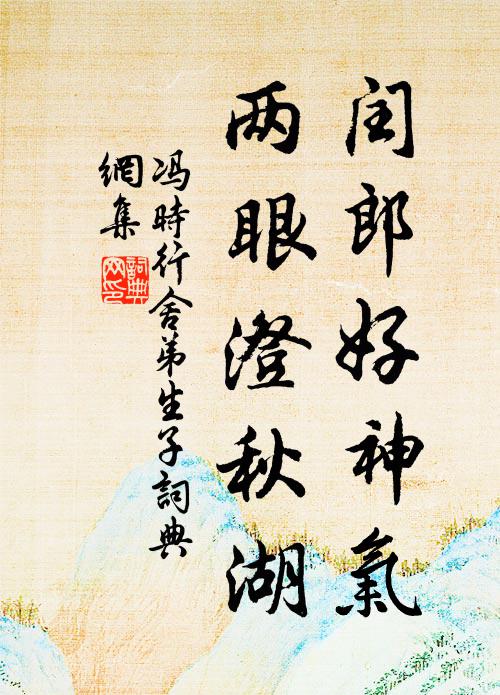 闰郎好神氣
两眼澄秋湖
冯時行舍弟生子詞典
網集
詞典網印